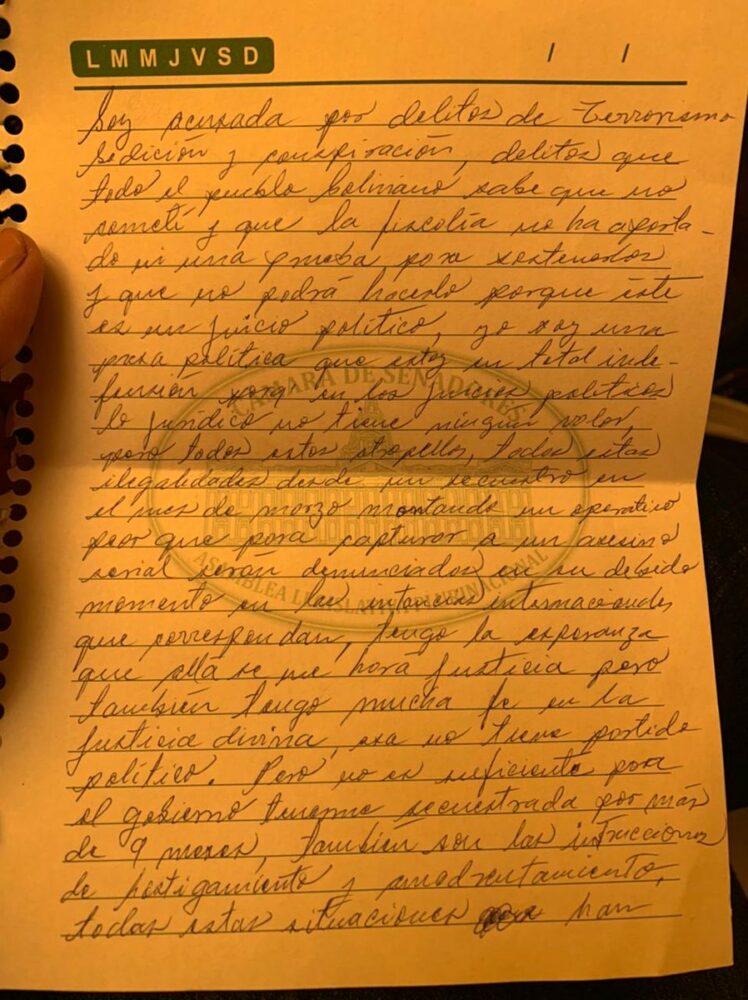 LMMJVSD / /
Soy acusada por delitos de Terrorismo
Sedición y conspiración, delitos que
todo el pueblo boliviano sabe que no
cometí y que la fiscalía no ha aporta-
do ni una prueba para sostenerlos
y que no podrá hacerlo porque este
es un juicio político, yo soy una
presa política que estoy en total inde-
fensión porq en los juicios políticos
lo jurídico no tiene ningún valor,
pero todos estos atropellos, todas estas
ilegalidades desde un secuestro en
el mes de marzo montando un operativo
peor que para capturar a un asesino
serial serán denunciados en su debido
momento en las intancias internacionales
que correspondan, tengo la esperanza
que allá se me hará justicia pero
también tengo mucha fe en la
justicia divina, esa no tiene partido
político. Pero no es suficiente para
el gobierno tenerme secuestrada por más
de 9 meses, también son las
de hostigamiento y amedrentamiento,
todas estas situaciones han
CÁMARA DE SENADORES
ASAMBLEA LEGISLATIVA PLURINACIONAL